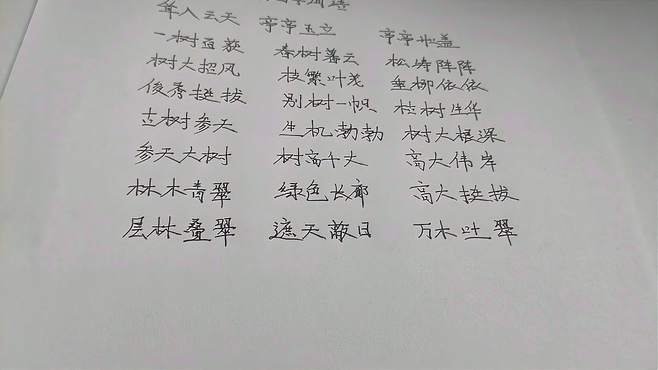 耸入云天 亭亭玉立 亭亭如盖
一树百获 春树暮云 松涛阵阵
树大招风 枝繁叶茂 垂柳依依
俊秀挺拔 别树一帜 桂树生华
古树参天 生机勃勃 树大根深
参天大树 树高千丈 高大伟岸
林木青翠 绿色长廊 高大挺拔
层林叠翠 遮天蔽日 万木吐翠